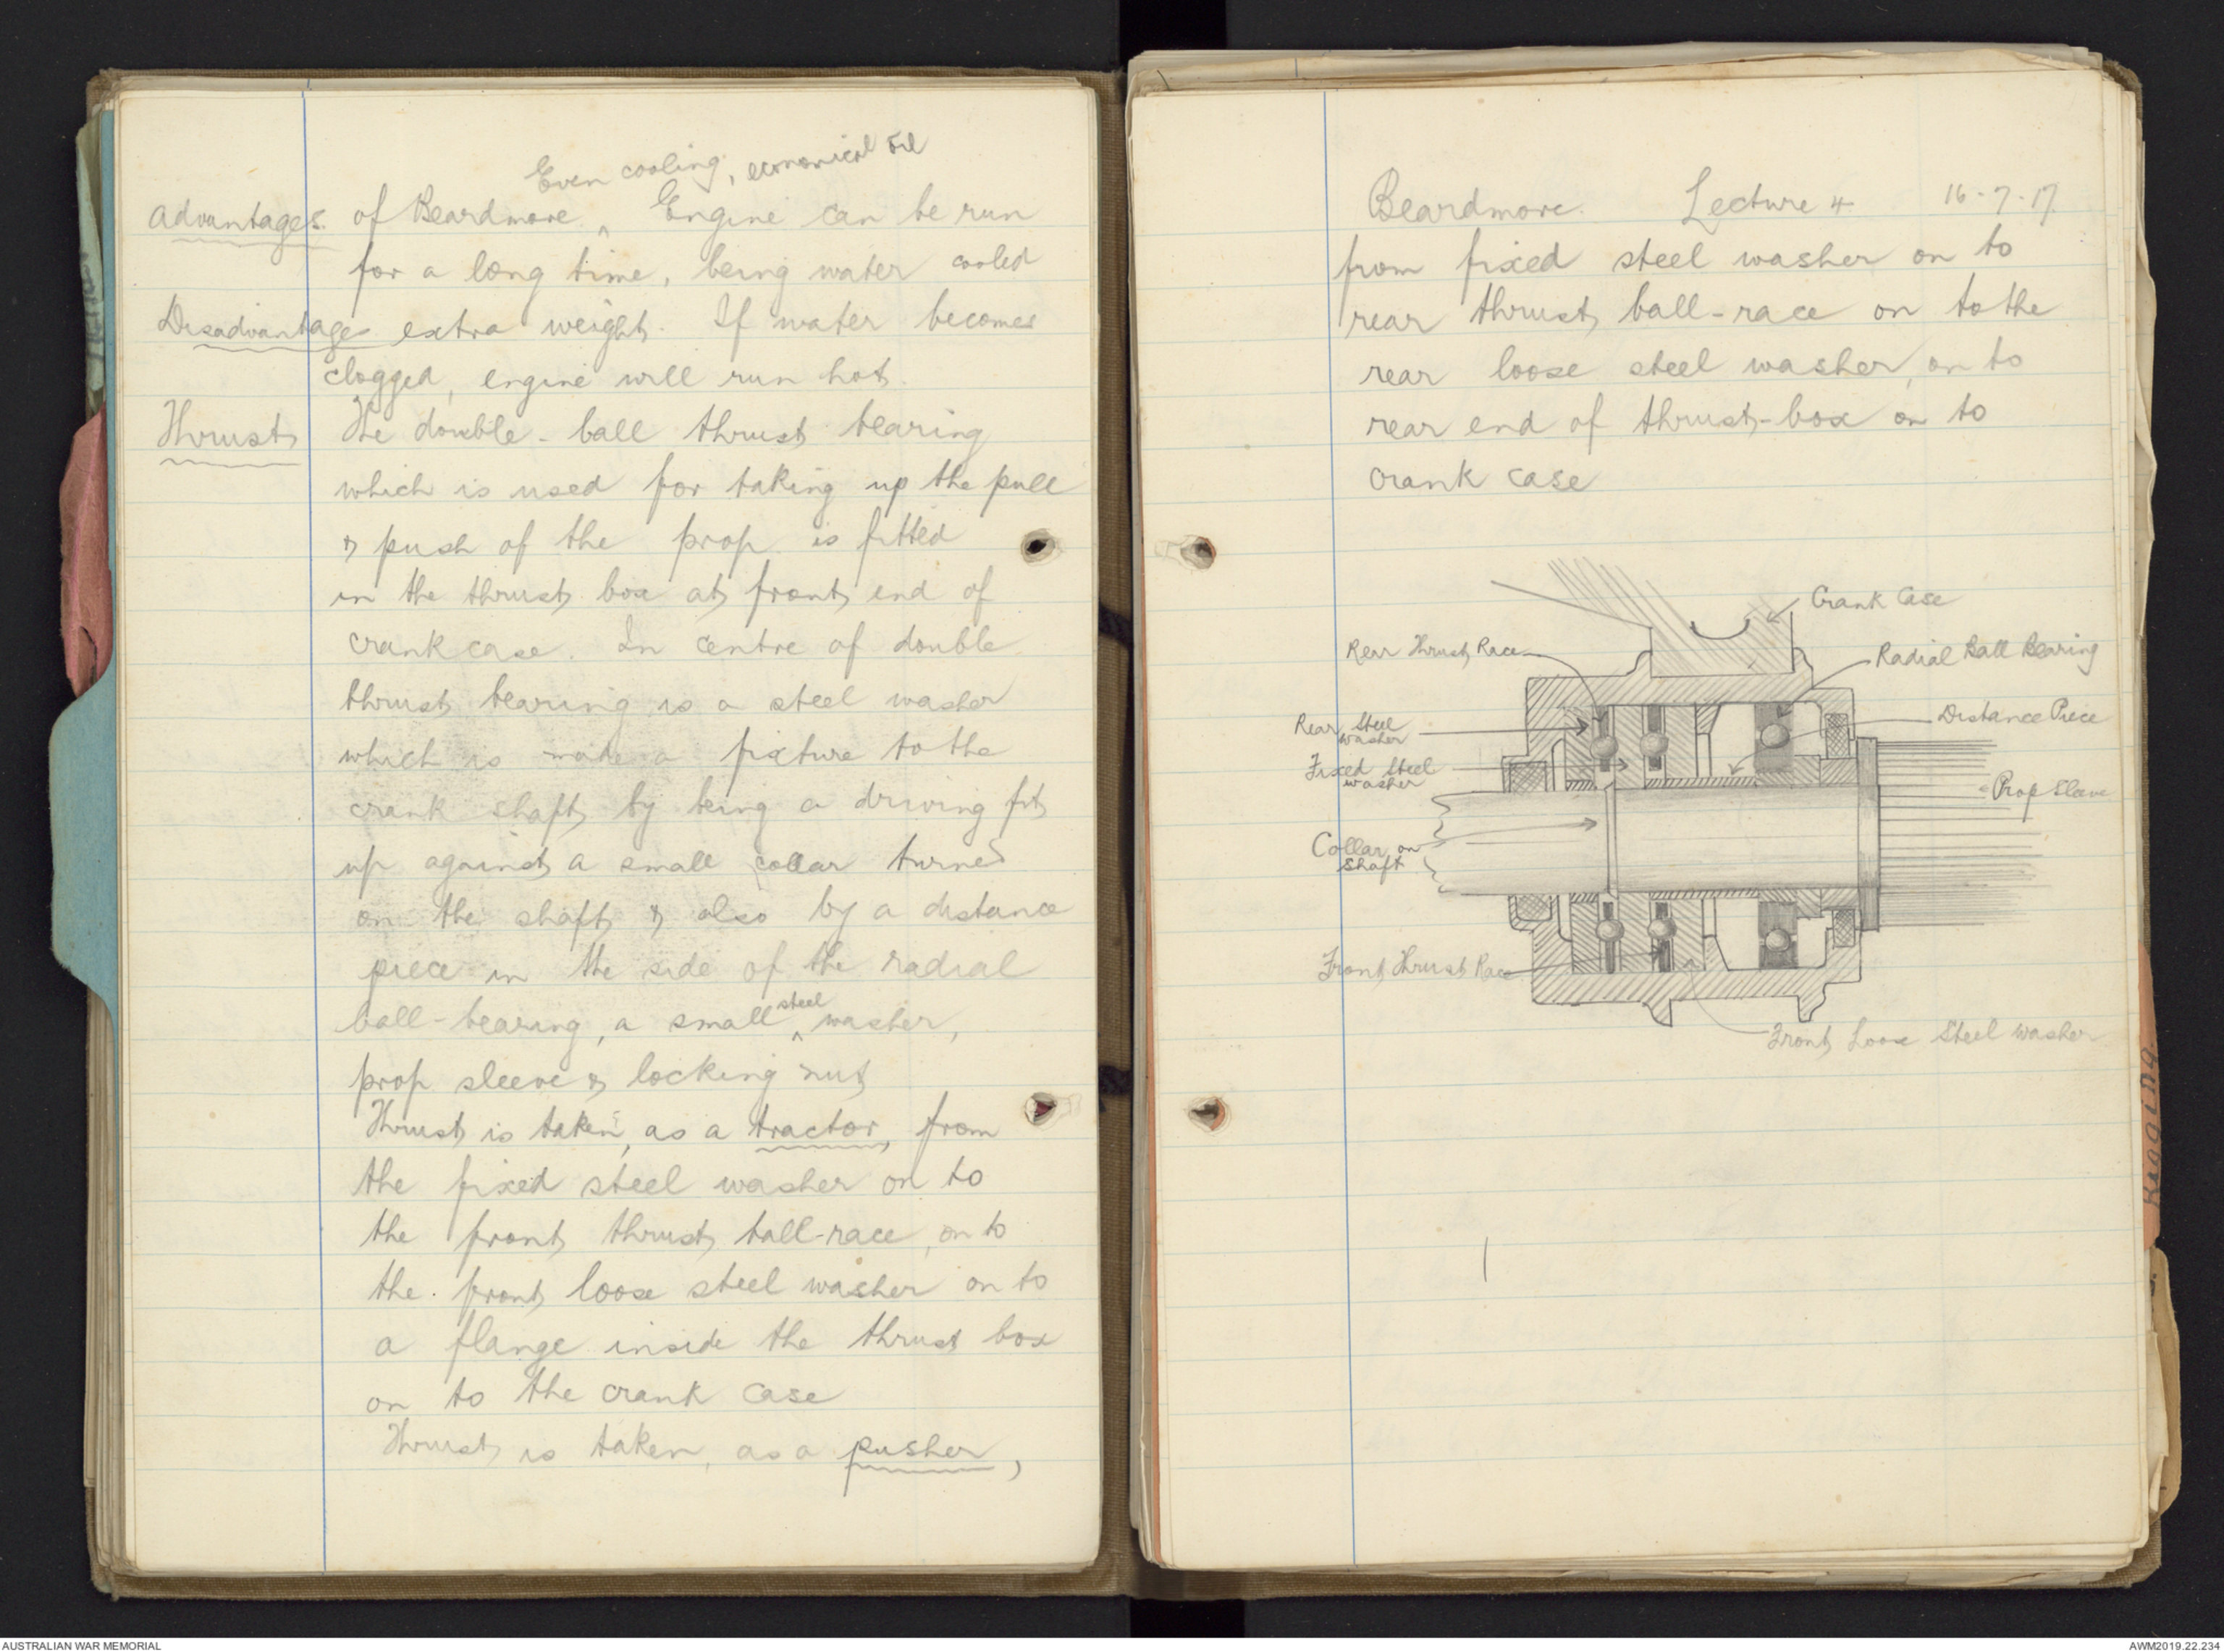 Even cooling, economical oil
Advantages of Beardmore ^ Engine can be run
for a long time, being water cooled
Disadvantages extra weight. If water becomes
clogged, engine will run hot.
Thrust The double-ball thrust bearing
which is used for taking up the pull
& push of the prop. is fitted
in the thrust box at front end of
crank case. In centre of double
thrust bearing is a steel washer
which is made a fixture to the
crank shaft by being a driving fit
up against a small collar turned
on the shaft & also by a distance
piece in the side of the radial
ball-bearing, a small ^ steel washer,
prop sleeve & locking nut
Thrust is taken, as a tractor, from
the fixed steel washer on to
the front thrust ball-race, on to
the front loose steel washer on to
a flange inside the thrust box
on to the crank case
Thrust is taken, as a pusher,
Beardmore. Lecture 4 16-7-17
from fixed steel washer on to
rear thrust ball-race on to the
rear loose steel washer, on to
rear end of thrust-box on to
crank case
Crank Case
Rear Thrust Race
Radial Ball Bearing
Rear Steel
washer
Distance Piece
Fixed Steel
washer
Prop Sleeve
Collar on
shaft
Front Thrust Race
Front Loose Steel Washer
Rigging.
AUSTRALIAN WAR MEMORIAL
AWM2019.22.234